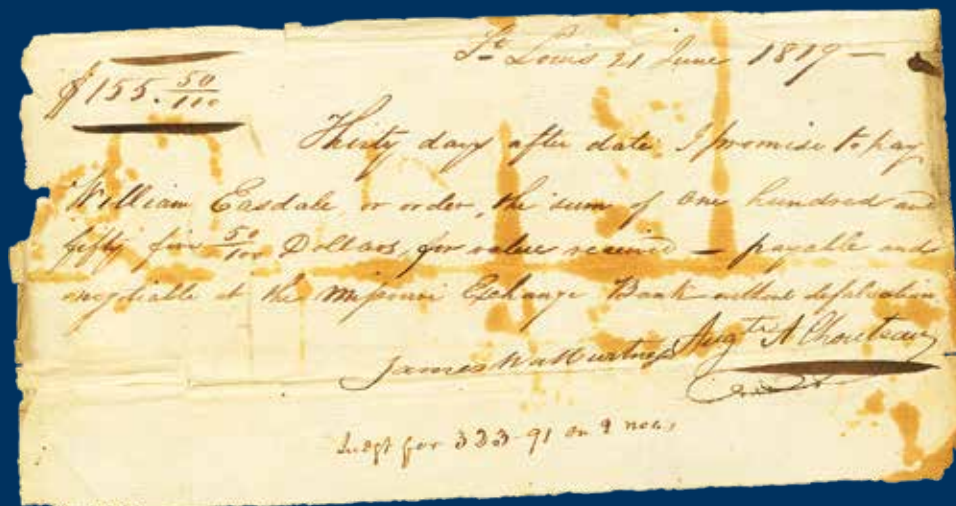 St Louis 21 June 1819 —
$155.50/100
Thirty days after date I promise to pay
William Easdale, or order, the sum of One hundred and
fifty five 50/100 Dollars, for value received — payable and
negotiable at the Missouri Exchange Bank without defalcation
James Watt witness Augte A Chouteau
Judgt for 323-91 on 2 notes